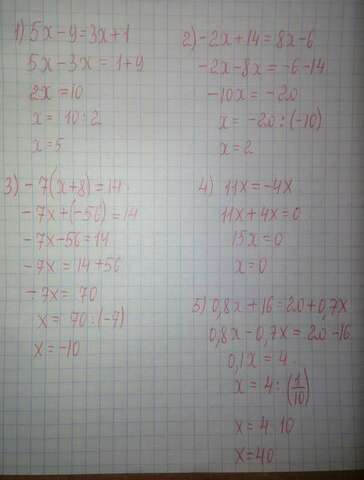 1) 5x-9=3x+1
5x-3x=1+9
2x=10
x= 10:2
x=5
2) -2x+14=8x-6
-2x-8x=-6-14
-10x=-20
x= -20:(-10)
x=2
3) -7(x+8)=14
-7x+(-56)=14
-7x-56=14
-7x=14+56
-7x=70
x=70:(-7)
x=-10
4) 11x=-4x
11x+4x=0
15x=0
x=0
5) 0,8x+16=20+0,7x
0,8x-0,7x=20-16
0,1x=4
x=4:(1/10)
x=4·10
x=40